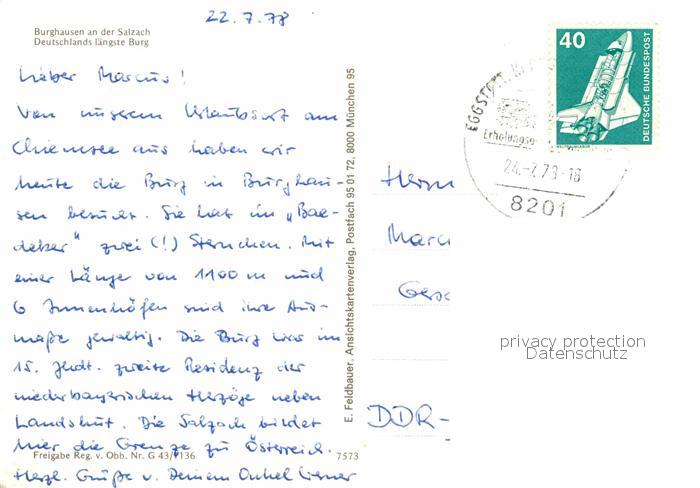 22.7.78
Burghausen an der Salzach
Deutschlands längste Burg
Lieber Marcus!
Von unserem Urlaubsort am
Chiemsee aus haben wir
heute die Burg in Burghau-
sen besucht. Sie hat im „Bae-
deker“ zwei (!) Sternchen. Mit
einer Länge von 1100 m und
6 Innenhöfen sind ihre Aus-
maße gewaltig. Die Burg war im
15. Jhdt. zweite Residenz der
niederbayerischen Herzöge neben
Landshut. Die Salzach bildet
hier die Grenze zu Österreich.
Freigabe Reg. v. Obb. Nr. G 43/1136
7573
Herzl. Grüße v. Deinem Onkel Werner
E. Feldbauer, Ansichtskartenverlag, Postfach 95 01 72, 8000 München 95
40
DEUTSCHE BUNDESPOST
EGGSTÄTT
Erholungso
24.-7.78-18
8201
Herrn
Marc
DDR-
privacy protection
Datenschutz